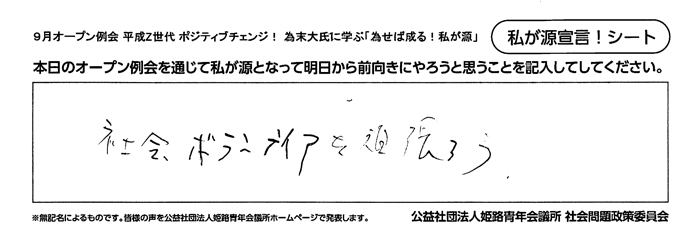 9月オープン例会 平成Z世代 ポジティブチェンジ! 為末大氏に学ぶ「為せば成る!私が源」
私が源宣言!シート
本日のオープン例会を通じて私が源となって明日から前向きにやろうと思うことを記入してしてください。
社会、ボランティアを 張ろう.
※無記名によるものです。皆様の声を公益社団法人姫路青年会議所ホームページで発表します。
公益社団法人姫路青年会議所 社会問題政策委員会